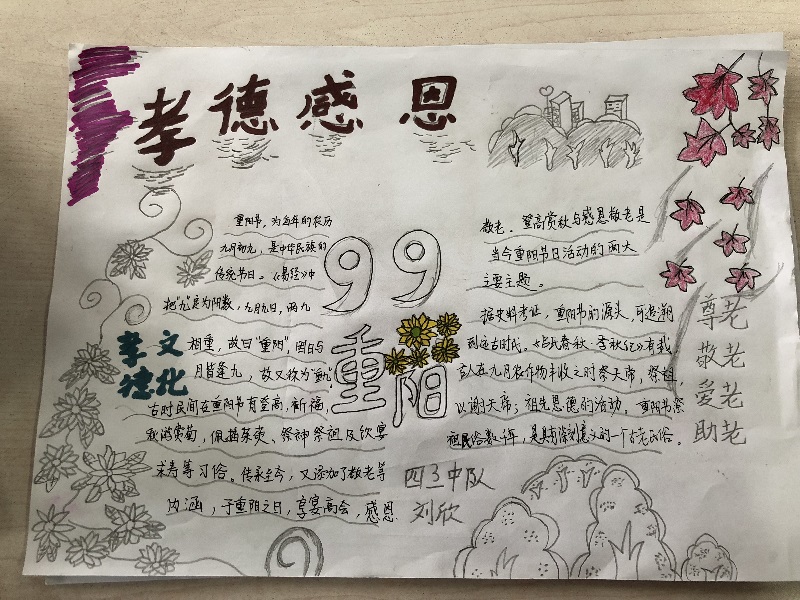 孝德感恩
重阳节，为每年的农历
九月初九，是中华民族的
传统节日。《易经》中
把“九”定为阳数，九月九日，两九
相重，故曰“重阳”，因日与
月皆逢九，故又称为“重九”。
古时民间在重阳节有登高，祈福，
秋游赏菊，佩插茱萸、祭神祭祖及饮宴
求寿等习俗。传承至今，又添加了敬老等
内涵，于重阳之日，享宴高会，感恩
99
重阳
孝文
德化
敬老。登高赏秋与感恩敬老是
当今重阳节日活动的两大
主要主题。
据史料考证，重阳节的源头，可追溯
到远古时代。《吕氏春秋·季秋纪》有载
古人在九月农作物丰收之时祭天帝，祭祖，
以谢天帝；祖先恩德的活动。重阳节祭
祖民俗数千年，是具有深刻意义的一个古老民俗。
尊老
敬老
爱老
助老
四3中队
刘欣